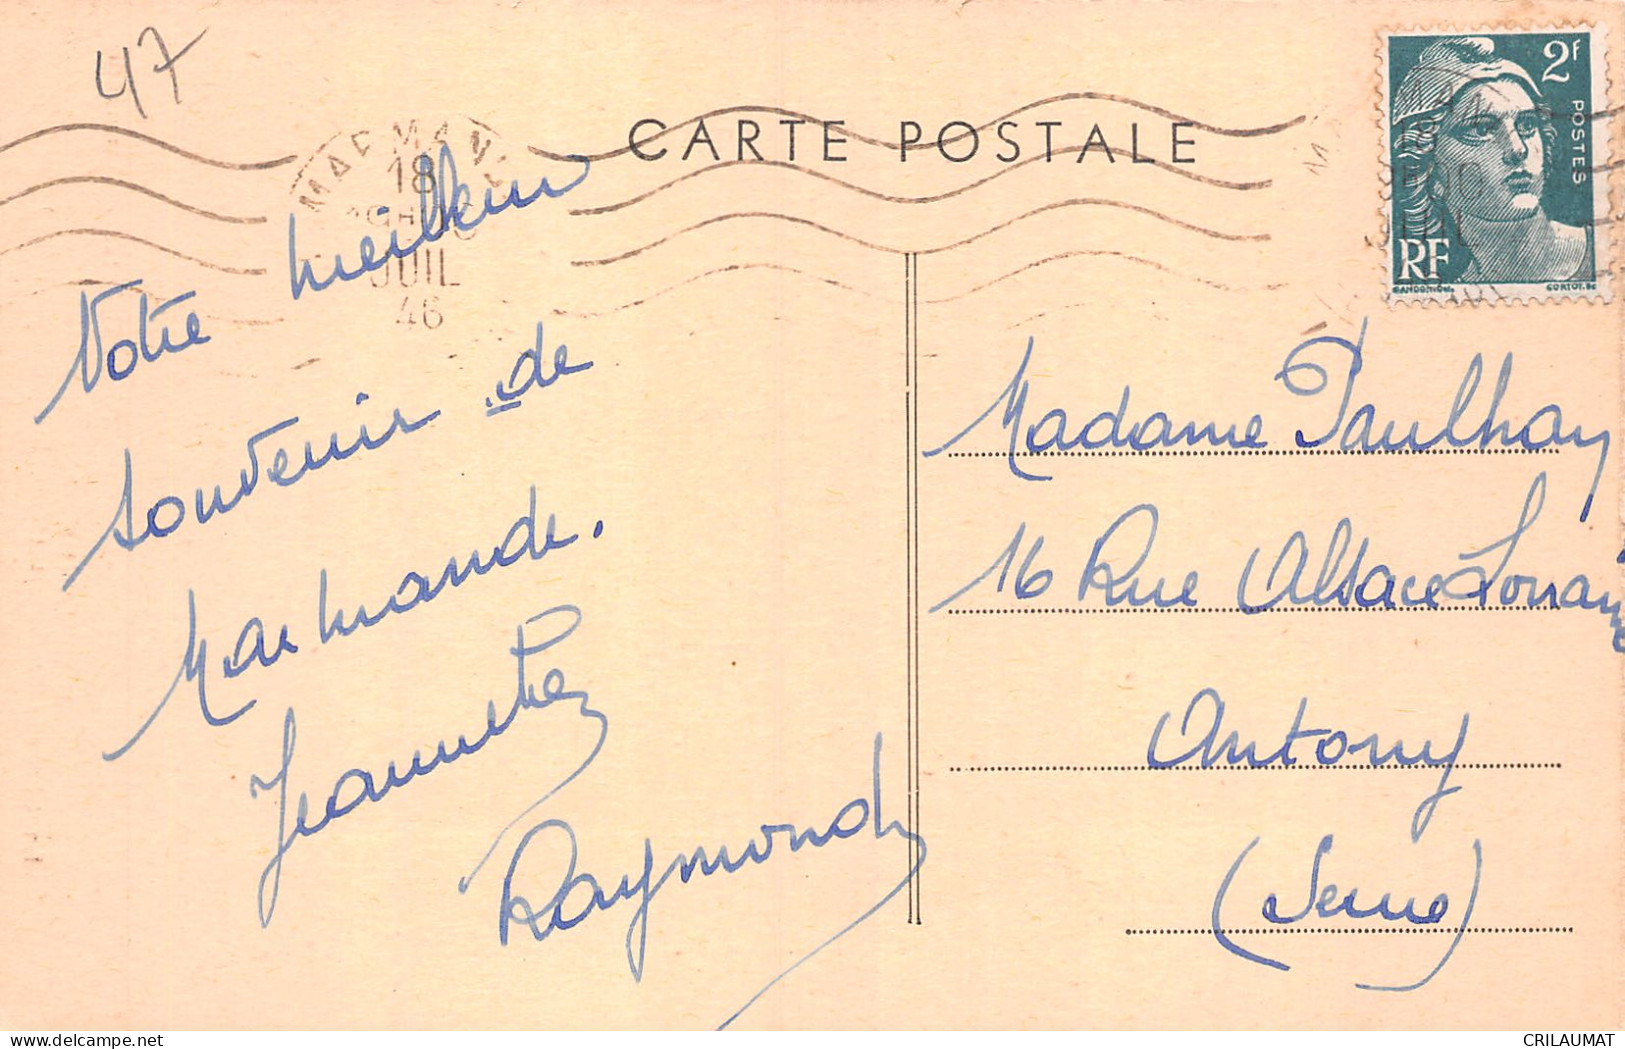 47
CARTE POSTALE
MARMAN
18
JUIL
46
2F
POSTES
RF
GANDON
CORTOT.SC
Votre meilleur
souvenir de
Marmande.
Jeannette
Raymond
Madame Paulhan
16 Rue Alsace Lorraine
Antony
(Seine)
CRILAUMAT